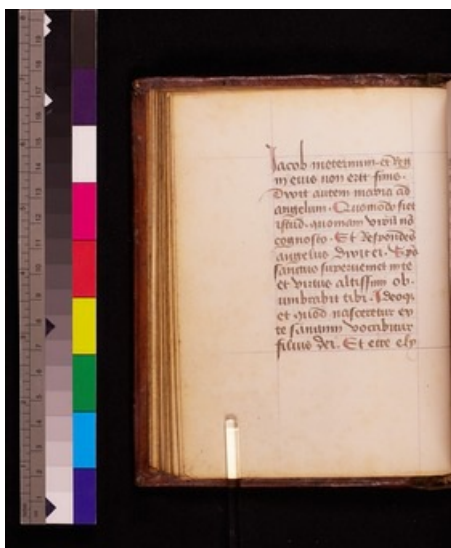 Jacob ineternum. et regn
in eius non erit finis.
Dixit autem maria ad
angelum. Quomodo fiet
istud. quoniam virū nō
cognosco. Et respondes
angelus dixit ei. Spūs
sanctus superveniet inte
et virtus altissim ob-
umbrabit tibi. Ideoqȝ
et quod nascetur ex
te sanctum vocabitur
filius dei. Et ecce ely